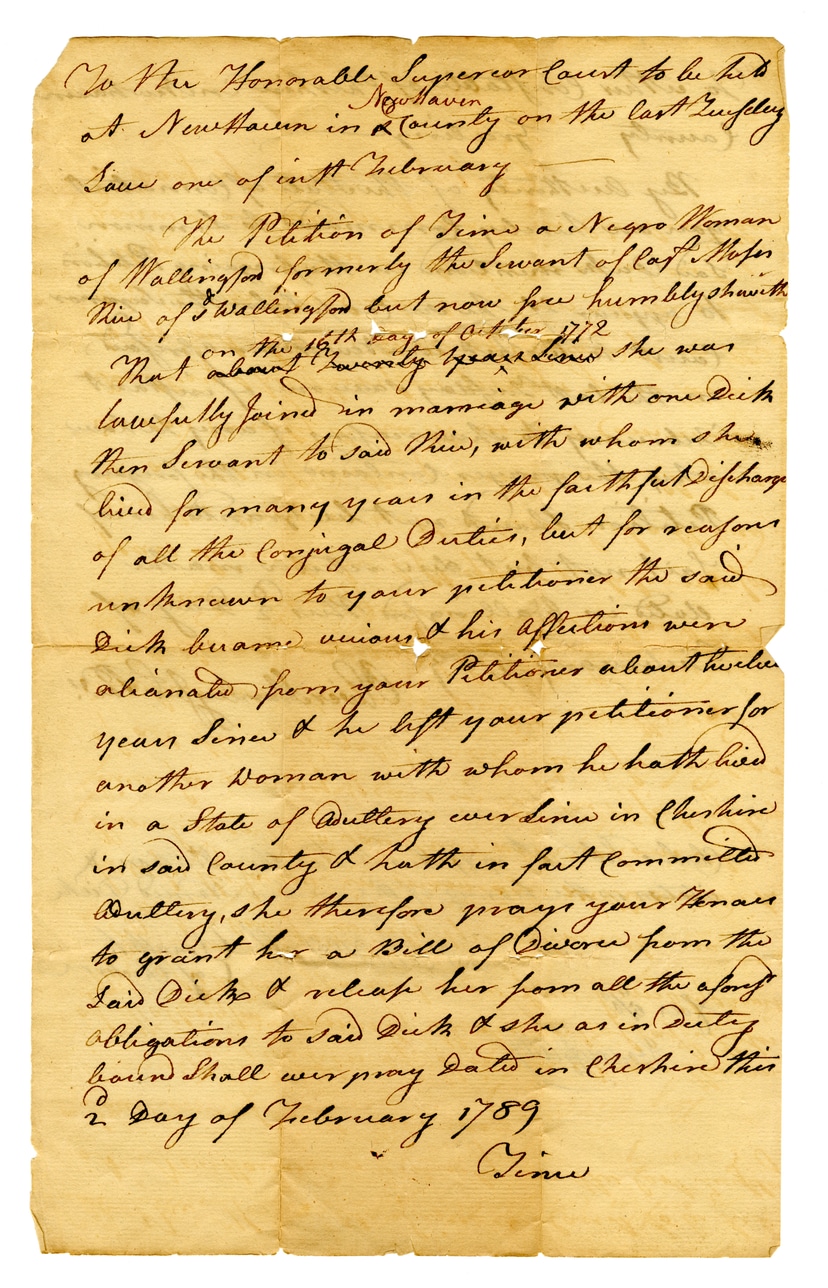 To the Honorable Superior Court to be held
New Haven
at New Haven in & County on the last Tuesday
Save one of inst February
The Petition of Time a Negro Woman
of Wallingford formerly the Servant of Capt Moses
Rice of sd Wallingford but now free humbly sheweth
on the 16th Day of October 1772
That about Twenty Years Since she was
lawfully Joined in marriage with one Dick
then Servant to said Rice, with whom she
lived for many years in the faithful Discharge
of all the Conjugal Duties, but for reasons
unknown to your petitioner the said
Dick became vicious & his Affections were
alianated from your Petitioner about twelve
years Since & he left your petitioner for
another Woman with whom he hath lived
in a State of Adultery ever Since in Cheshire
in said County & hath in fact Committed
Adultery, she therefore prays your Honors
to grant her a Bill of Divorce from the
Said Dick & release her from all the aforesd
obligations to said Dick & she as in Duty
bound Shall ever pray Dated in Cheshire this
2d Day of February 1789
Time